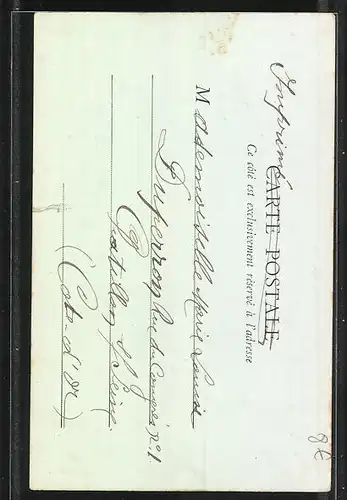 Imprimé
CARTE POSTALE
Ce côté est exclusivement réservé à l'adresse
Mademoiselle Marie Louise
Duperron Rue du Congrès No 1
Chatillon s/ Seine
(Côte-d'Or)
8€